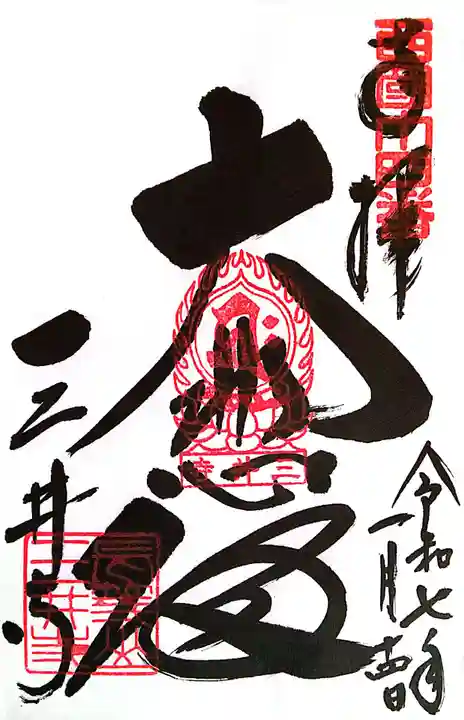 西国十四番
奉拝
大悲殿
三井寺
三井寺
令和七年
一月